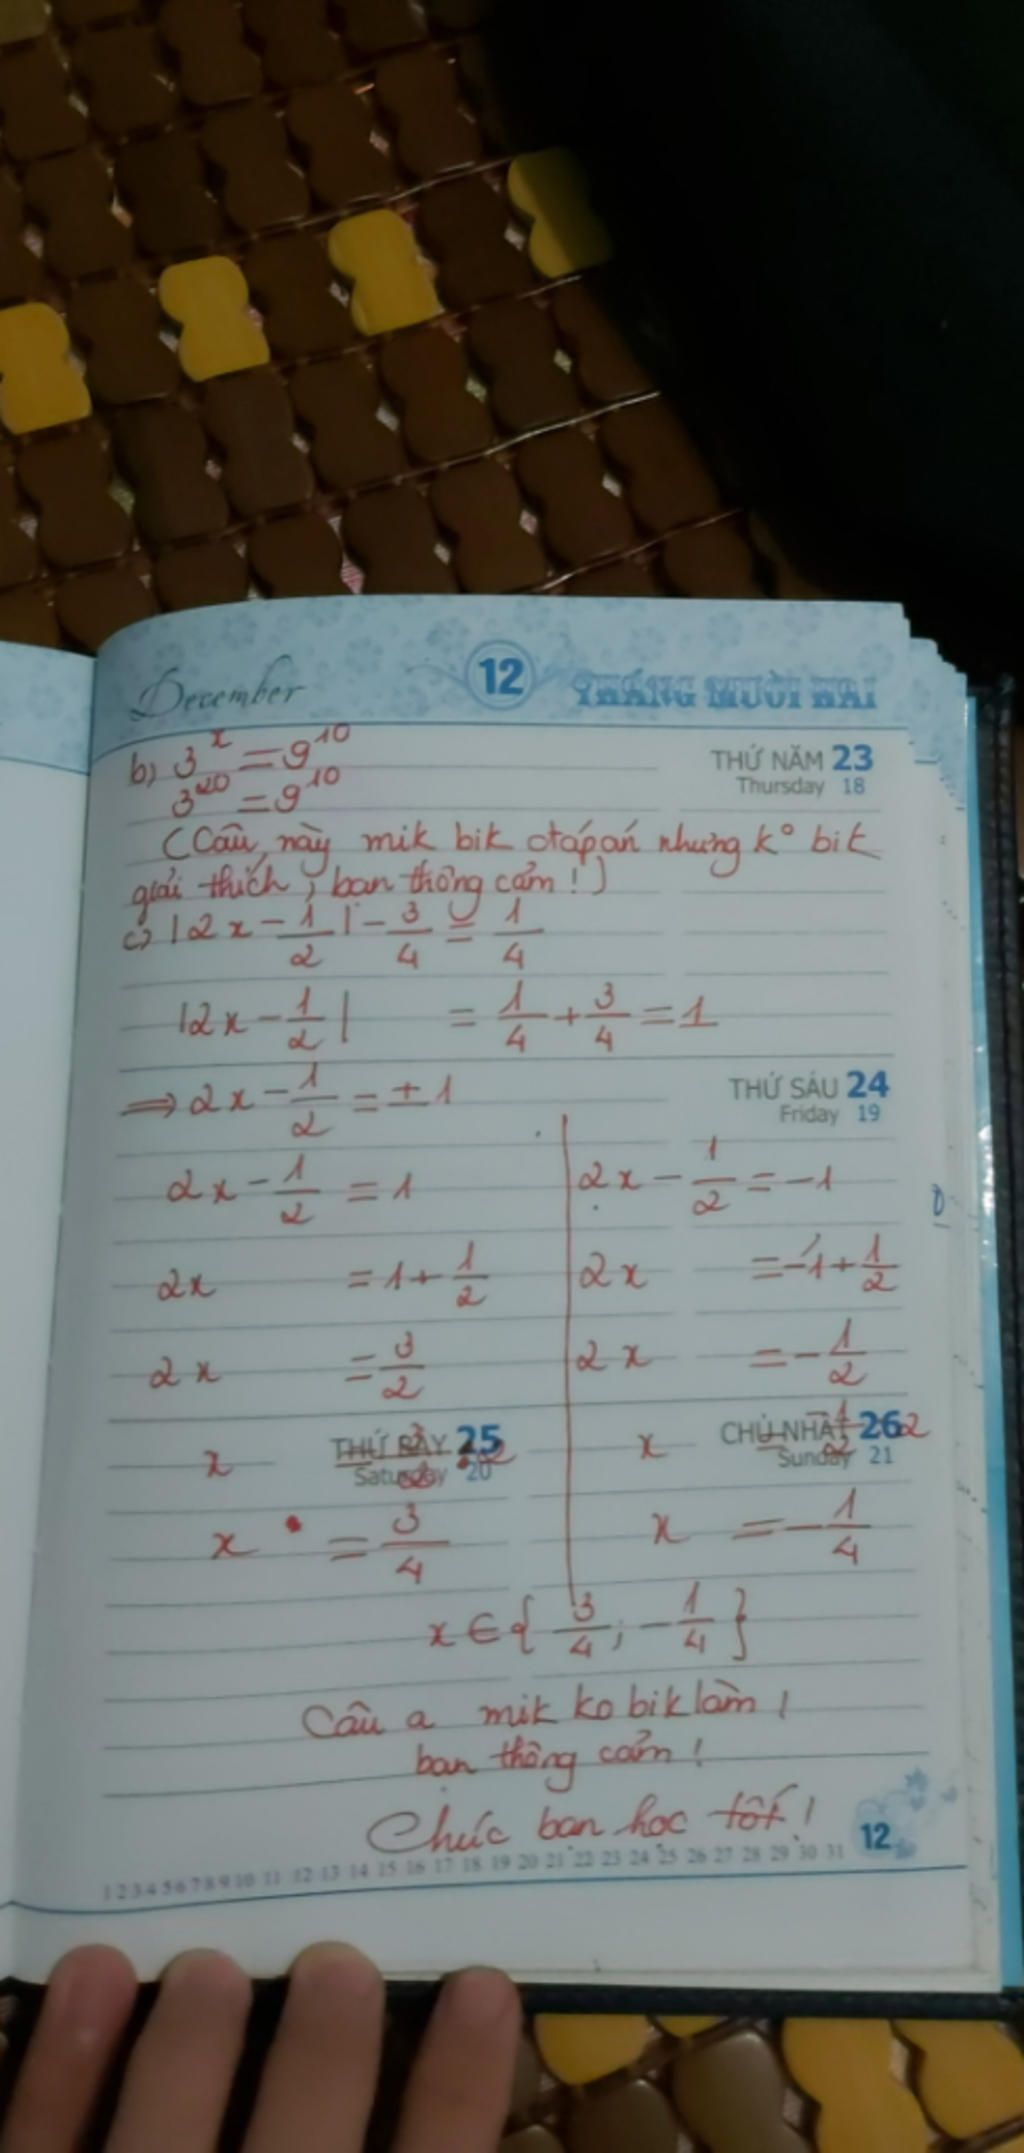 December 12 THÁNG MƯỜI HAI
b) 3^x = 9^10
THỨ NĂM 23
Thursday 18
3^20 = 9^10
(Câu này mik bik đáp án nhưng k° bik
giải thích, bạn thông cảm!)
c) |2x - 1/2| - 3/4 = 1/4
|2x - 1/2| = 1/4 + 3/4 = 1
THỨ SÁU 24
Friday 19
=> 2x - 1/2 = ± 1
2x - 1/2 = 1
2x - 1/2 = -1
2x = 1 + 1/2
2x = -1 + 1/2
2x = 3/2
2x = -1/2
THỨ BẢY 25
Saturday 20
CHỦ NHẬT 26
Sunday 21
x = 3/2 : 2
x = -1/2 : 2
x = 3/4
x = -1/4
x ∈ { 3/4 ; -1/4 }
Câu a mik ko bik làm!
bạn thông cảm!
Chúc bạn học tốt!
12
1 2 3 4 5 6 7 8 9 10 11 12 13 14 15 16 17 18 19 20 21 22 23 24 25 26 27 28 29 30 31